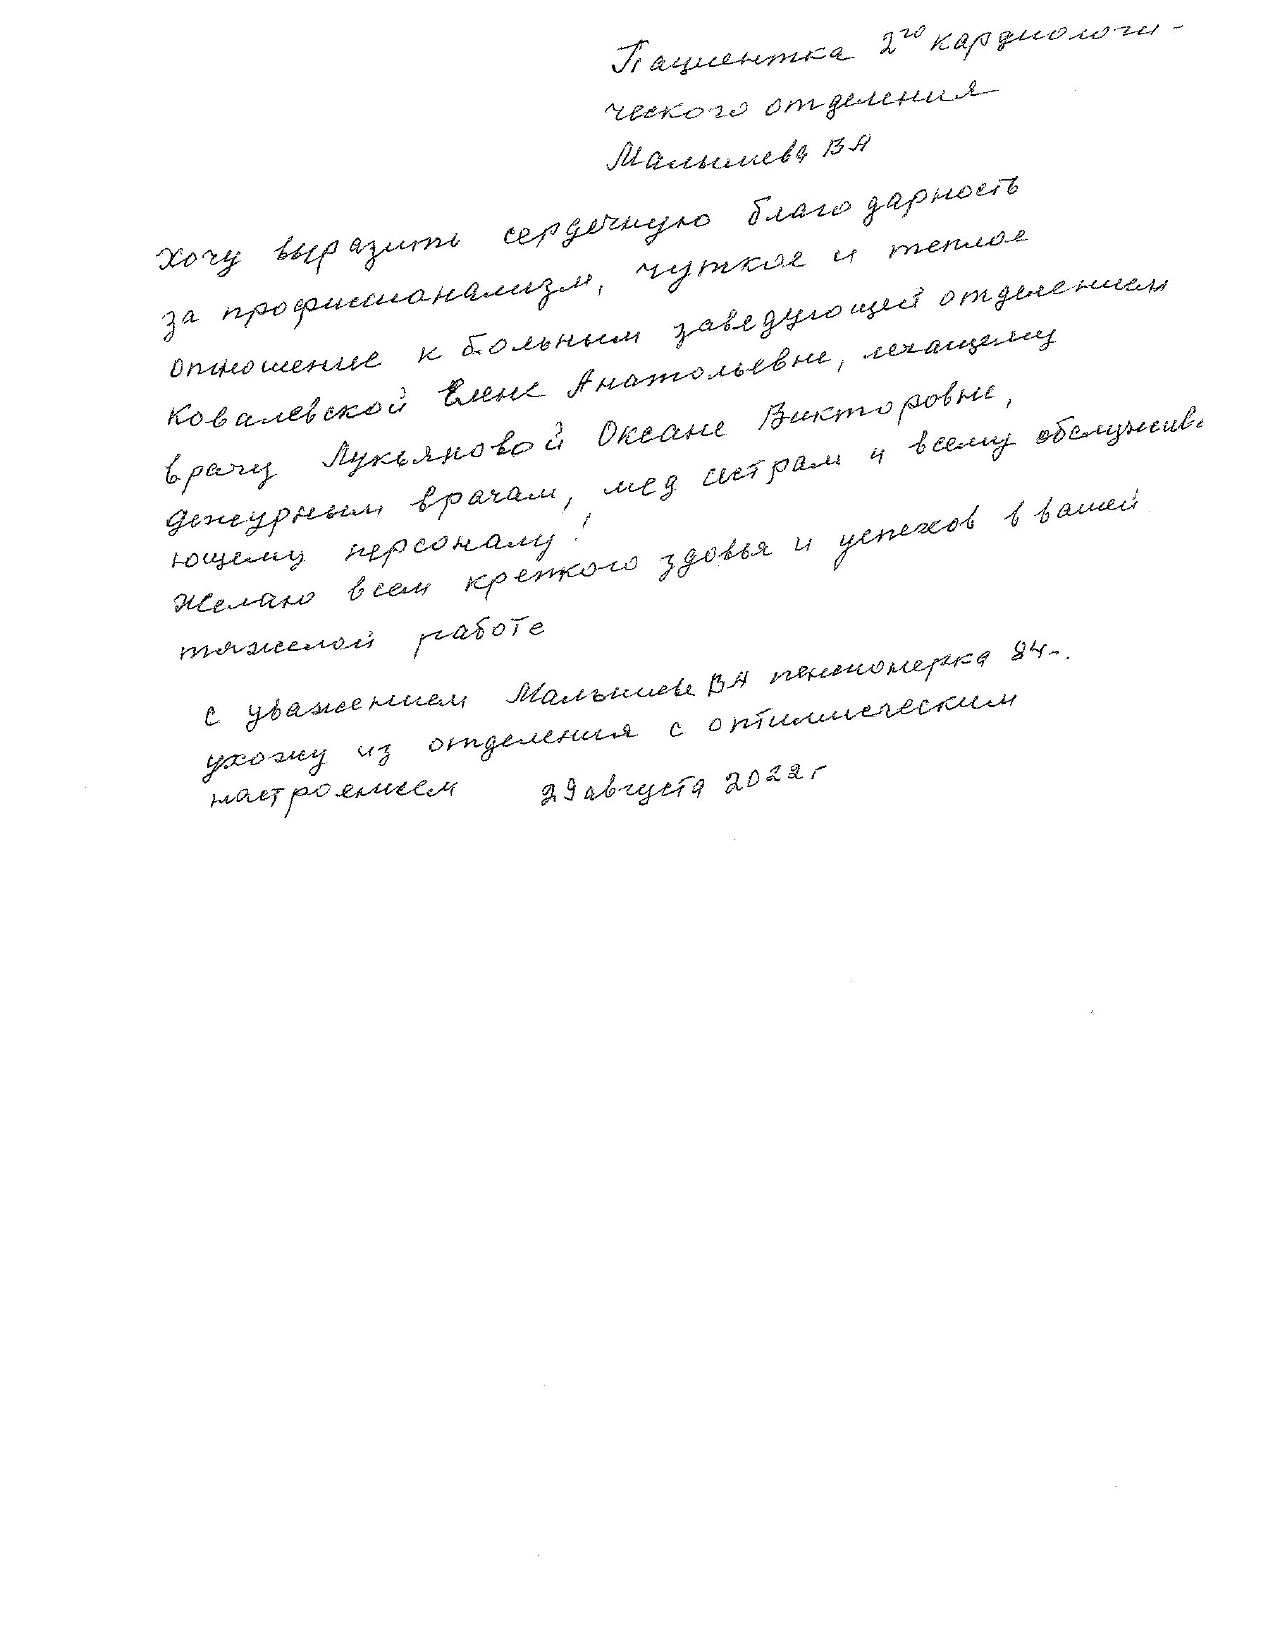 Пациентка 2го кардиологи-
ческого отделения
Малышева ВА
Хочу выразить сердечную благодарность
за профишионализм, чуткое и теплое
отношение к больным заведующей отделением
Ковалевской Елене Анатольевне, лечащему
врачу Лукьяновой Оксане Викторовне,
дежурным врачам, мед систрам и всему обслужива
ющему персоналу!
Желаю всем крепкого здовья и успехов в вашей
тяжелой работе
с уважением Малышева ВА пенсионерка 84-.
ухожу из отделения с оптимистическим
настроением 29 августа 2022г